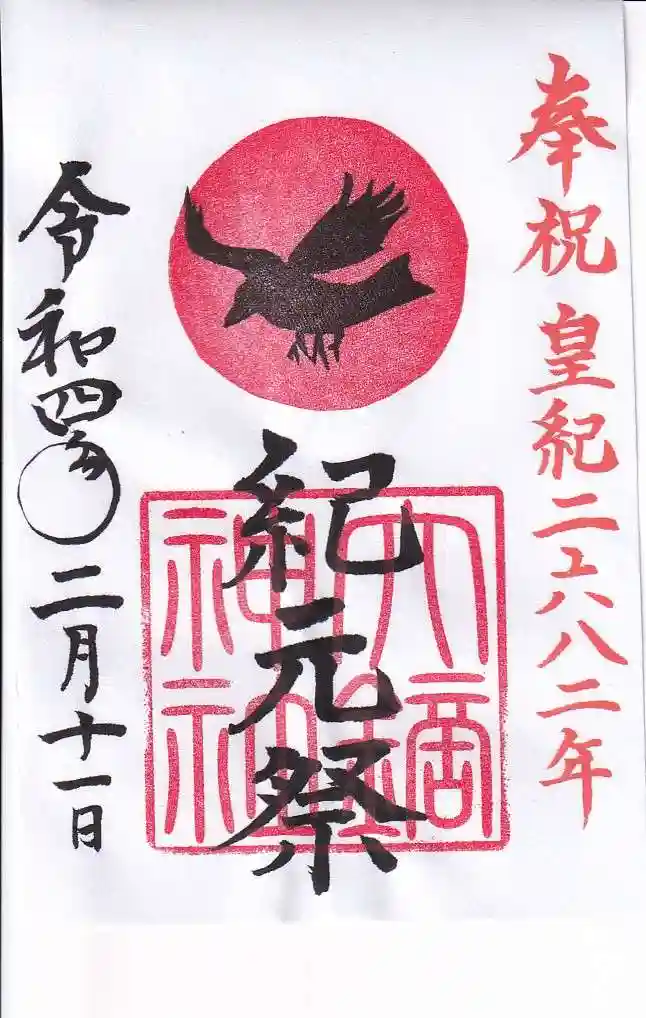 奉祝 皇紀二六八二年
紀元祭
大鏑
神社
令和四年二月十一日